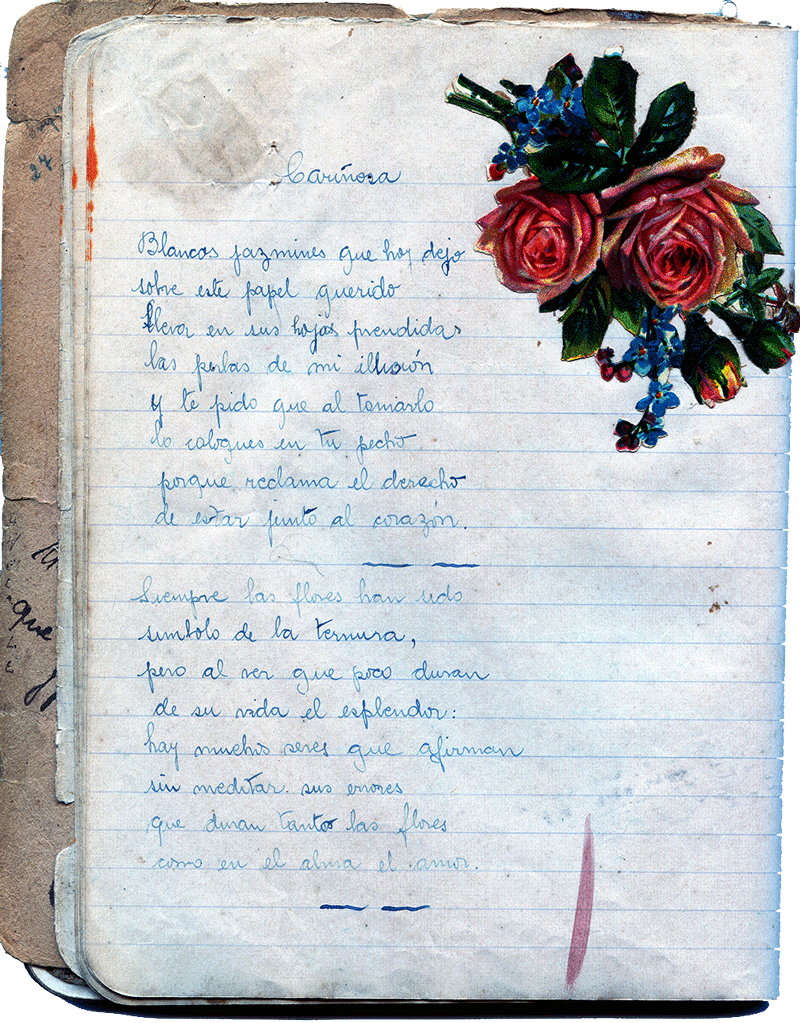 Cariñosa
Blancos jazmines que hoy dejo
sobre este papel querido
lleva en sus hojas prendidas
las perlas de mi illusión
y te pido que al tomarlo
lo coloques en tu pecho
porque reclama el derecho
de estar junto al corazón.
Siempre las flores han sido
simbolo de la ternura,
pero al ver que poco duran
de su vida el esplendor:
hay muchos seres que afirman
sin meditar sus errores
que duran tanto las flores
como en el alma el amor.
27
que